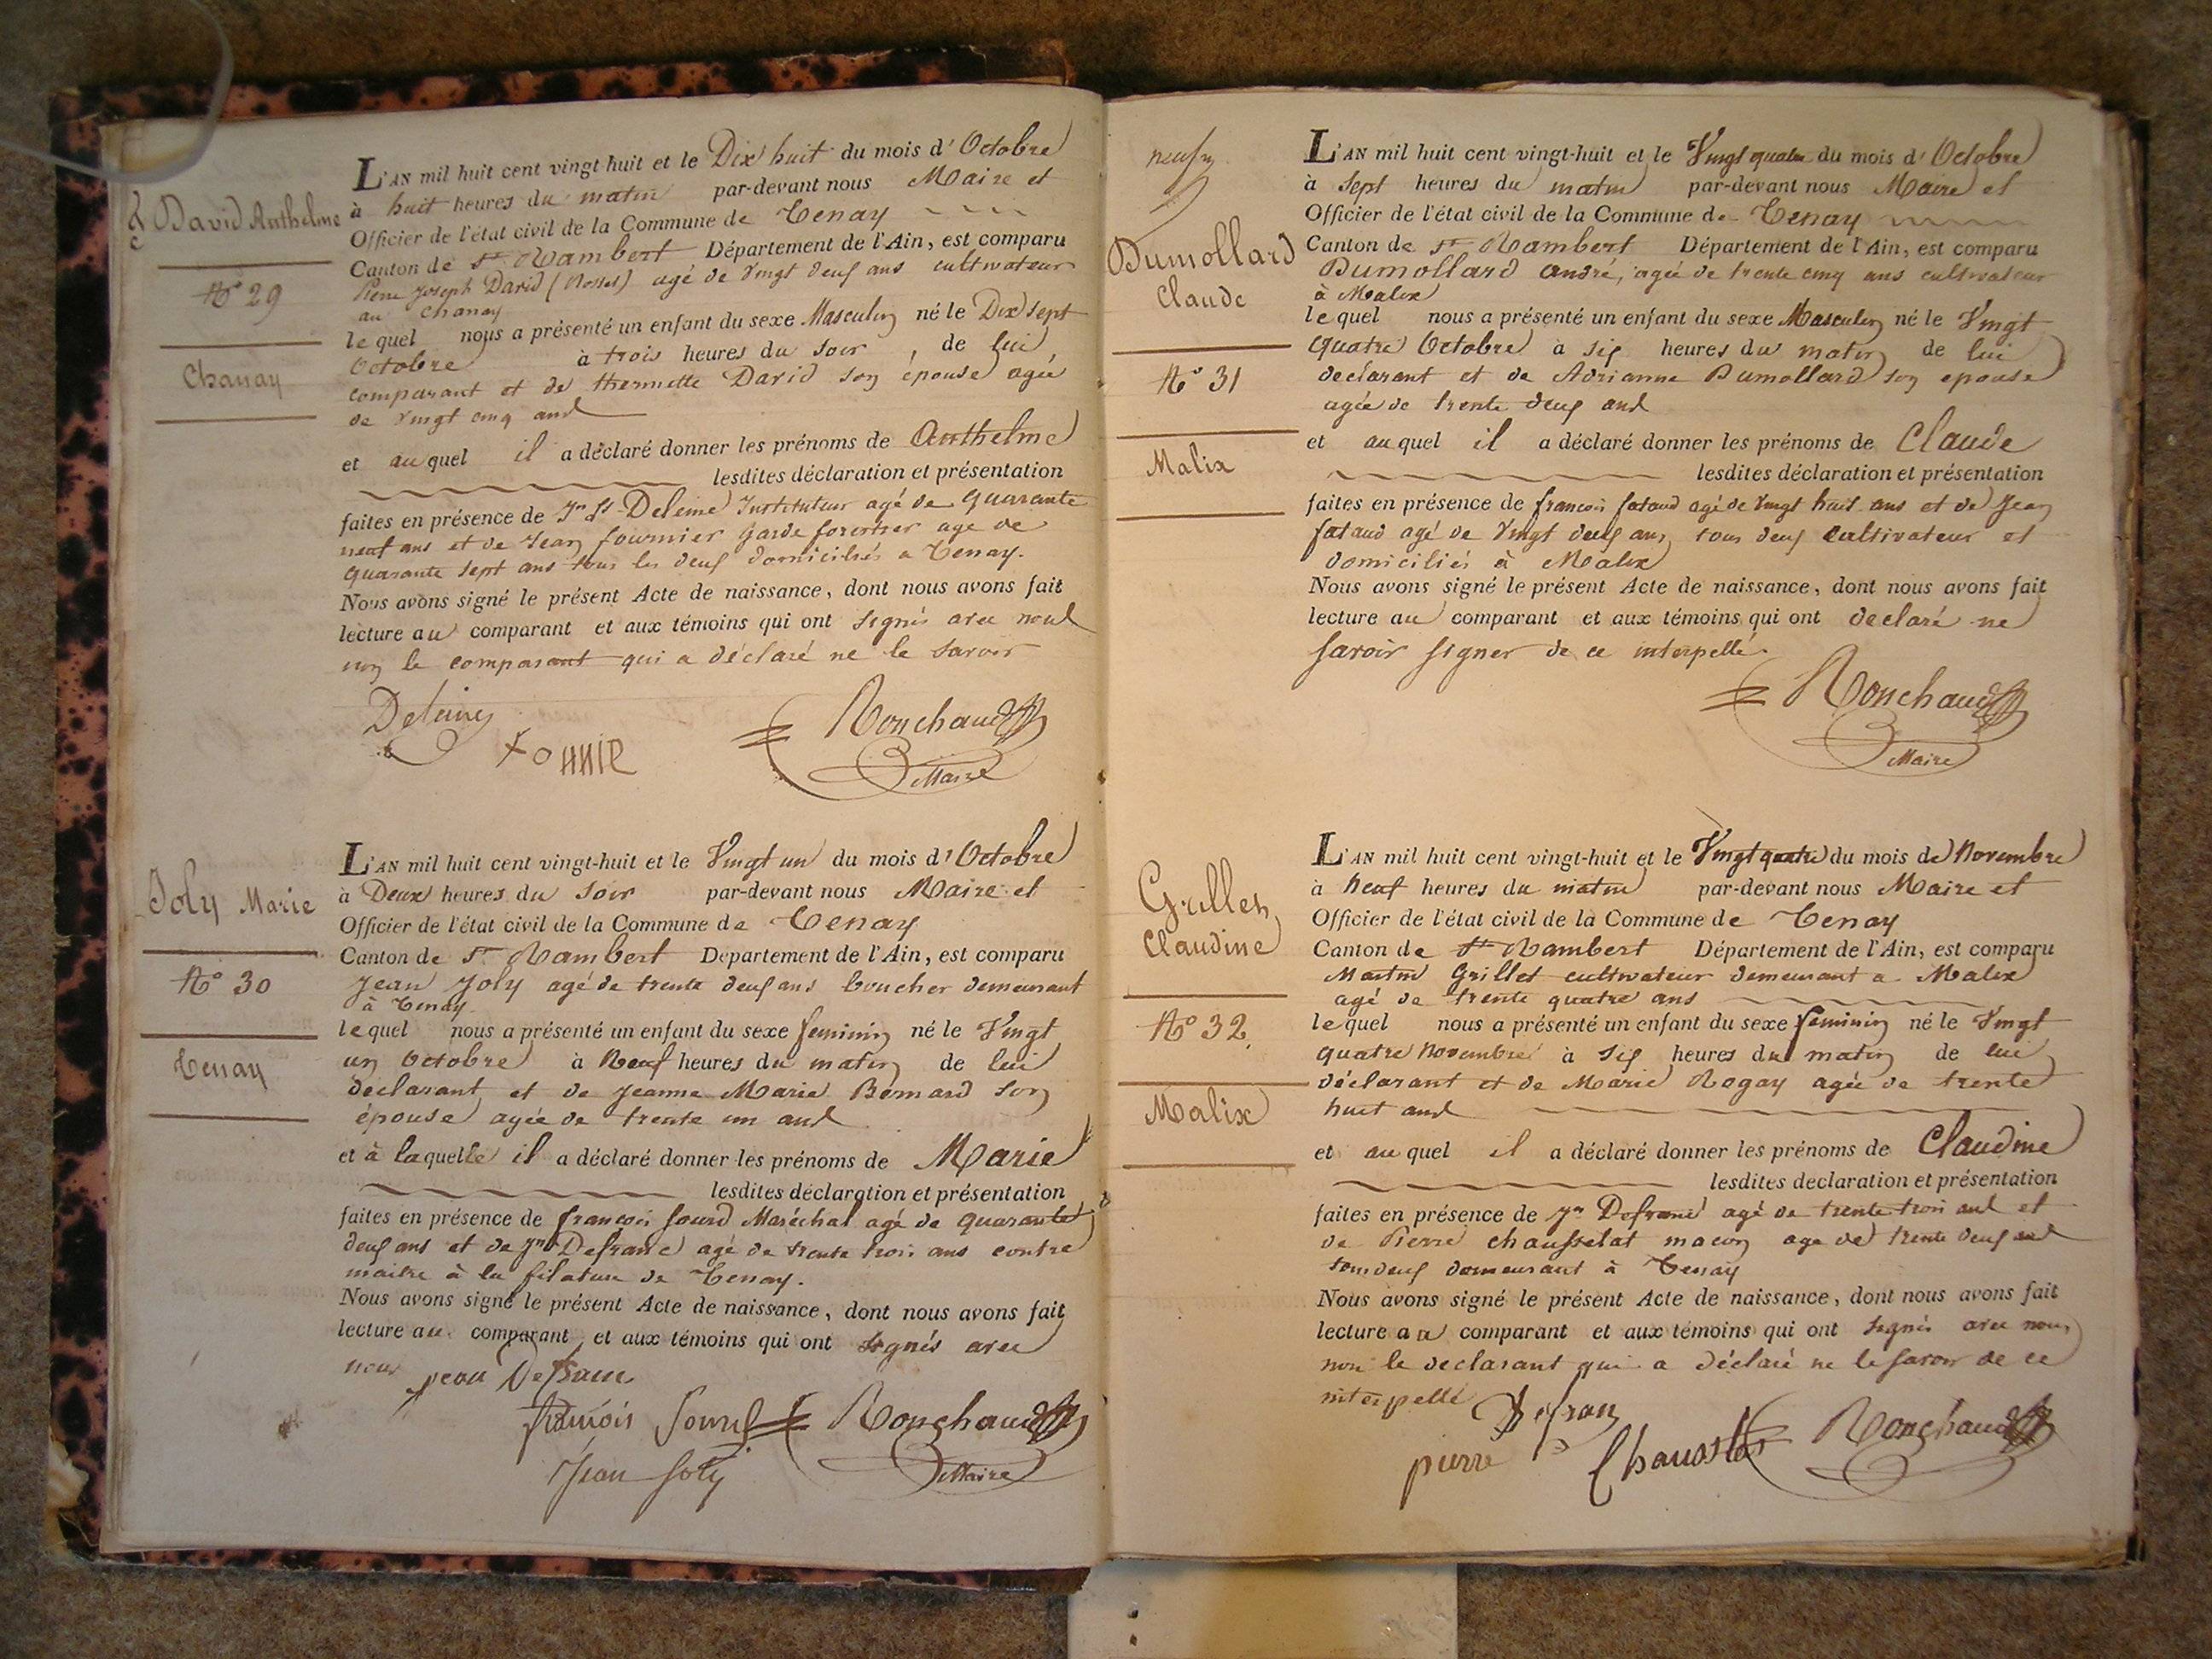 David Anthelme
N° 29
Chanay
L'AN mil huit cent vingt-huit et le Dix huit du mois d'Octobre
à huit heures du matin par-devant nous Maire et
Officier de l'état civil de la Commune de Tenay
Canton de St Rambert Département de l'Ain, est comparu
Pierre Joseph David (Rosset) agé de Vingt deux ans cultivateur
au Chanay
le quel nous a présenté un enfant du sexe Masculin né le Dix sept
Octobre à trois heures du soir, de lui,
comparant et de thermette David son epouse agée
de Vingt cinq ans
et au quel il a déclaré donner les prénoms de Anthelme
lesdites déclaration et présentation
faites en présence de Jn Deleine Instituteur agé de quarante
neuf ans et de Jean fournier garde forestier age de
quarante sept ans tous les deux domiciliés a Tenay.
Nous avons signé le présent Acte de naissance, dont nous avons fait
lecture au comparant et aux témoins qui ont signés avec nous
non le comparant qui a déclaré ne le savoir
Deleine
Ronchaud
Maire
Joly Marie
N° 30
Tenay
L'AN mil huit cent vingt-huit et le Vingt un du mois d'Octobre
à Deux heures du soir par-devant nous Maire et
Officier de l'état civil de la Commune de Tenay
Canton de St Rambert Département de l'Ain, est comparu
Jean Joly agé de trente deux ans boucher demeurant
à Tenay
le quel nous a présenté un enfant du sexe feminin né le Vingt
un Octobre à Neuf heures du matin de lui
declarant et de Jeanne Marie Bernard son
épouse agée de trente un ans
et à laquelle il a déclaré donner les prénoms de Marie
lesdites déclaration et présentation
faites en présence de françois Sourd Maréchal agé de quarante
deux ans et de Jn Defrance agé de trente trois ans contre
maitre à la filature de Tenay.
Nous avons signé le présent Acte de naissance, dont nous avons fait
lecture au comparant et aux témoins qui ont signés avec
nous
jean Defrance
françois Sourd
Ronchaud
Jean Joly
Maire
Dumollard
Claude
N° 31
Malix
L'AN mil huit cent vingt-huit et le Vingt quatre du mois d'Octobre
à Sept heures du matin par-devant nous Maire et
Officier de l'état civil de la Commune de Tenay
Canton de St Rambert Département de l'Ain, est comparu
Dumollard andré, agée de trente cinq ans cultivateur
à Malix
le quel nous a présenté un enfant du sexe Masculin né le Vingt
quatre Octobre à six heures du matin de lui
declarant et de Adrianne Dumollard son epouse
agée de trente deux ans
et au quel il a déclaré donner les prénoms de Claude
lesdites déclaration et présentation
faites en présence de francois fataud agé de vingt huit ans et de Jean
fataud agé de Vingt deux ans tous deux cultivateur et
domiciliés à Malix
Nous avons signé le présent Acte de naissance, dont nous avons fait
lecture au comparant et aux témoins qui ont declaré ne
Savoir signer de ce interpellé.
Ronchaud
Maire
Grillet
Claudine
N° 32
Malix
L'AN mil huit cent vingt-huit et le Vingt quatre du mois de Novembre
à Neuf heures du matin par-devant nous Maire et
Officier de l'état civil de la Commune de Tenay
Canton de St Rambert Département de l'Ain, est comparu
Martin Grillet cultivateur demeurant a Malix
agé de trente quatre ans
le quel nous a présenté un enfant du sexe feminin né le Vingt
quatre Novembre à six heures du matin de lui
déclarant et de Marie Rogay agée de trente
huit ans
et au quel il a déclaré donner les prénoms de Claudine
lesdites declaration et présentation
faites en présence de Jn Defrance agé de trente trois ans et
de Pierre chausselat macon age de trente deux ans
tous deux demeurant à Tenay
Nous avons signé le présent Acte de naissance, dont nous avons fait
lecture au comparant et aux témoins qui ont signés avec nous
non le declarant qui a déclaré ne le savoir de ce
interpellé
Defran
pierre
Ronchaud